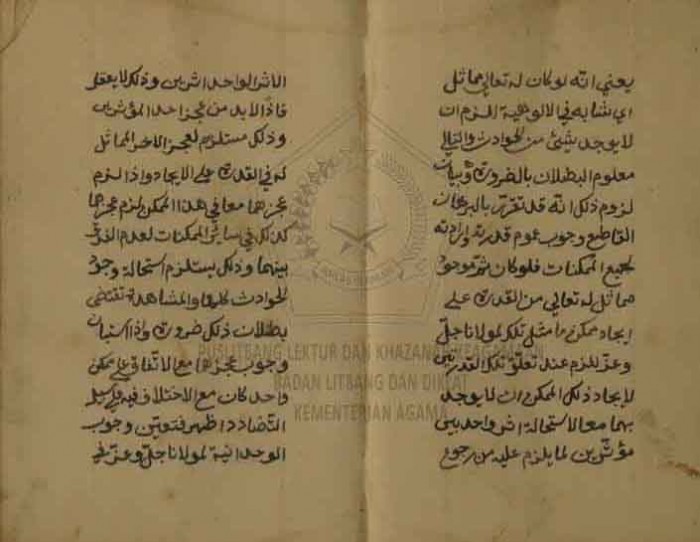 يعني انه لو كان له تعالى مماثل
اي شابه في الالوهية لزم ان
لا يوجد شيئ من الحوادث والتالي
معلوم البطلان بالضرورة وبيان
لزوم ذلك انه قد تقرر بالبرهان
القاطع وجوب عموم قدرته وارادته
لجميع الممكنات فلو كان ثم موجود
مماثل له تعالى من القدرة على
ايجاد ممكن ما مثل تلك لمولانا جل
وعز يلزم عند تعلق تلك القدرتين
لايجاد ذلك الممكن ان لا يوجد
بهما مع الاستحالة اثر واحد بين
مؤثرين لما يلزم عليه من رجوع
الاثر الواحد اثرين وذلك لا يعقل
فاذا لا بد من عجز احد المؤثرين
وذلك مستلزم لعجز الاخر المماثل
له في القدرة على الايجاد واذا لزم
عجزهما معا في هذا الممكن لزم عجزهما
كذلك في سائر الممكنات لعدم الفرق
بينهما وذلك يستلزم استحالة وجود
الحوادث كلها والمشاهدة تقتضي
بطلان ذلك ضرورة واذا استبان
وجوب عجزهما مع الاتفاق على ممكن
واحد كان مع الاختلاف فيه على سبيل
التضادد اظهر فتعين وجوب
الوحدانية لمولانا جل وعز في
PUSLITBANG LEKTUR DAN KHAZANAH KEAGAMAAN
BADAN LITBANG DAN DIKLAT
KEMENTERIAN AGAMA